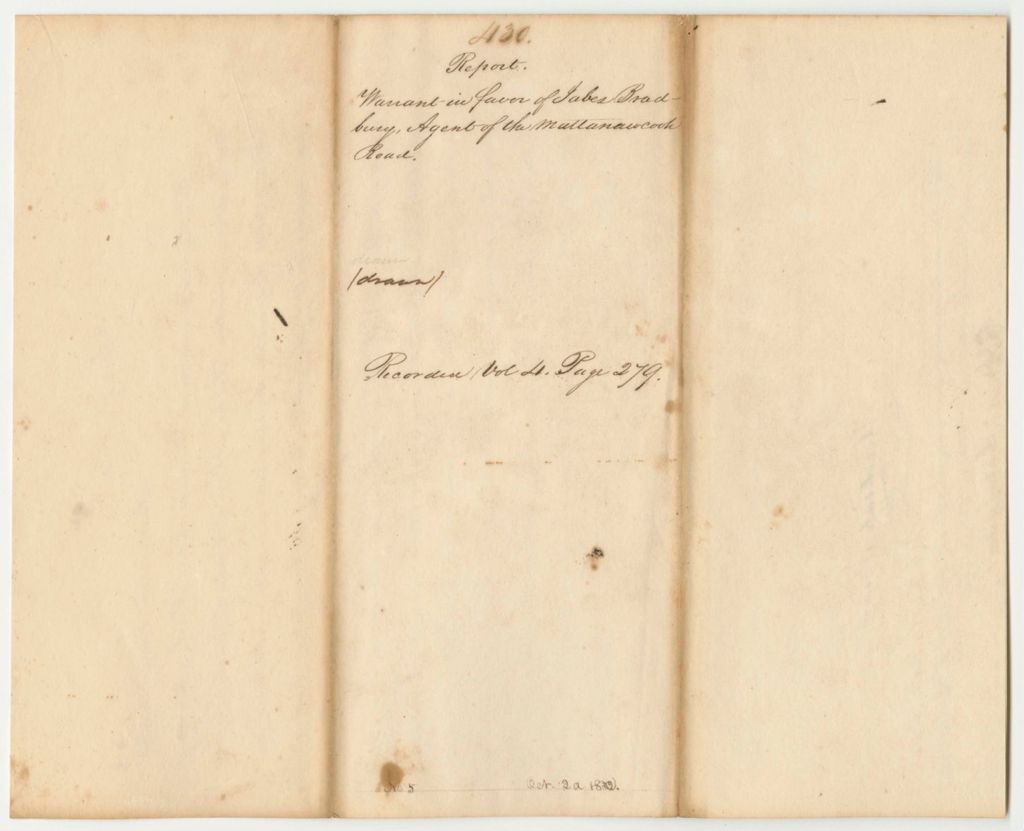 430.
Report.
Warrant in favor of Jabez Brad-
bury, Agent of the Mattanawcook
Road.
drawn
(drawn)
Recorded Vol 4. Page 279.
No 5